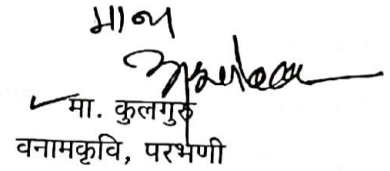 मान्य
मा. कुलगुरु
वनामकृवि, परभणी